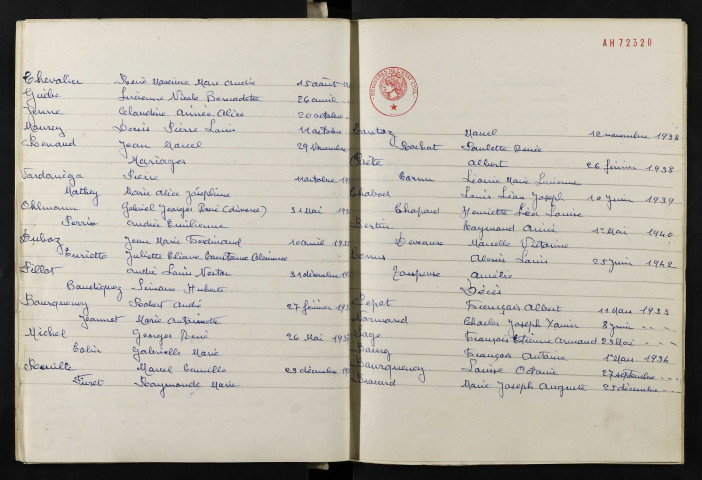 Chevalier René Maxime Marc André 15 août
Guibe Lucienne Nicole Bernadette 26 avril
Jenne Claudine Aimée Alice 20 octobre
Mourey Denis Pierre Louis 11 octobre
Renaud Jean Marcel 29 novembre
Mariages
Pierre 11 octobre
Mathey Marie Alice Joséphine
Ohlmann Gabriel Georges René (divorce) 31 Mai
Perrin Andrée Emilienne
Duboz Jean Marie Ferdinand 10 avril
Henriotte Juliette Eliane
Pillot André Louis Nestor 31 décembre
Baudiquez Simone Huberte
Bourqueney Robert André 27 février
Jeannet Marie Antoinette
Michel Georges René 26 Mai
Colin Gabrielle Marie
Marcel Camille 29 décembre
Furet Raymonde Marie
AH72320
Marcel 12 novembre 1938
Rochat Paulette Denise
Albert 26 février 1938
Cornu Léonie Marie Lucienne
Chabod Louis Léon Joseph 10 Juin 1939
Chapard Henriette Léa Louise
Bertin Raymond Aimé 1er Mai 1940
Deveaux Marcelle Victorine
Cornus Alexis Louis 25 Juin 1942
Amélie
Décès
Pepet François Albert 11 Mars 1933
Normand Charles Joseph Xavier 8 Juin - - -
Sage François Etienne Armand 23 Mai - - -
François Antoine 1er Mars 1934
Bourqueney Louise Octavie 27 septembre - - -
Marie Joseph Auguste 25 décembre - - -